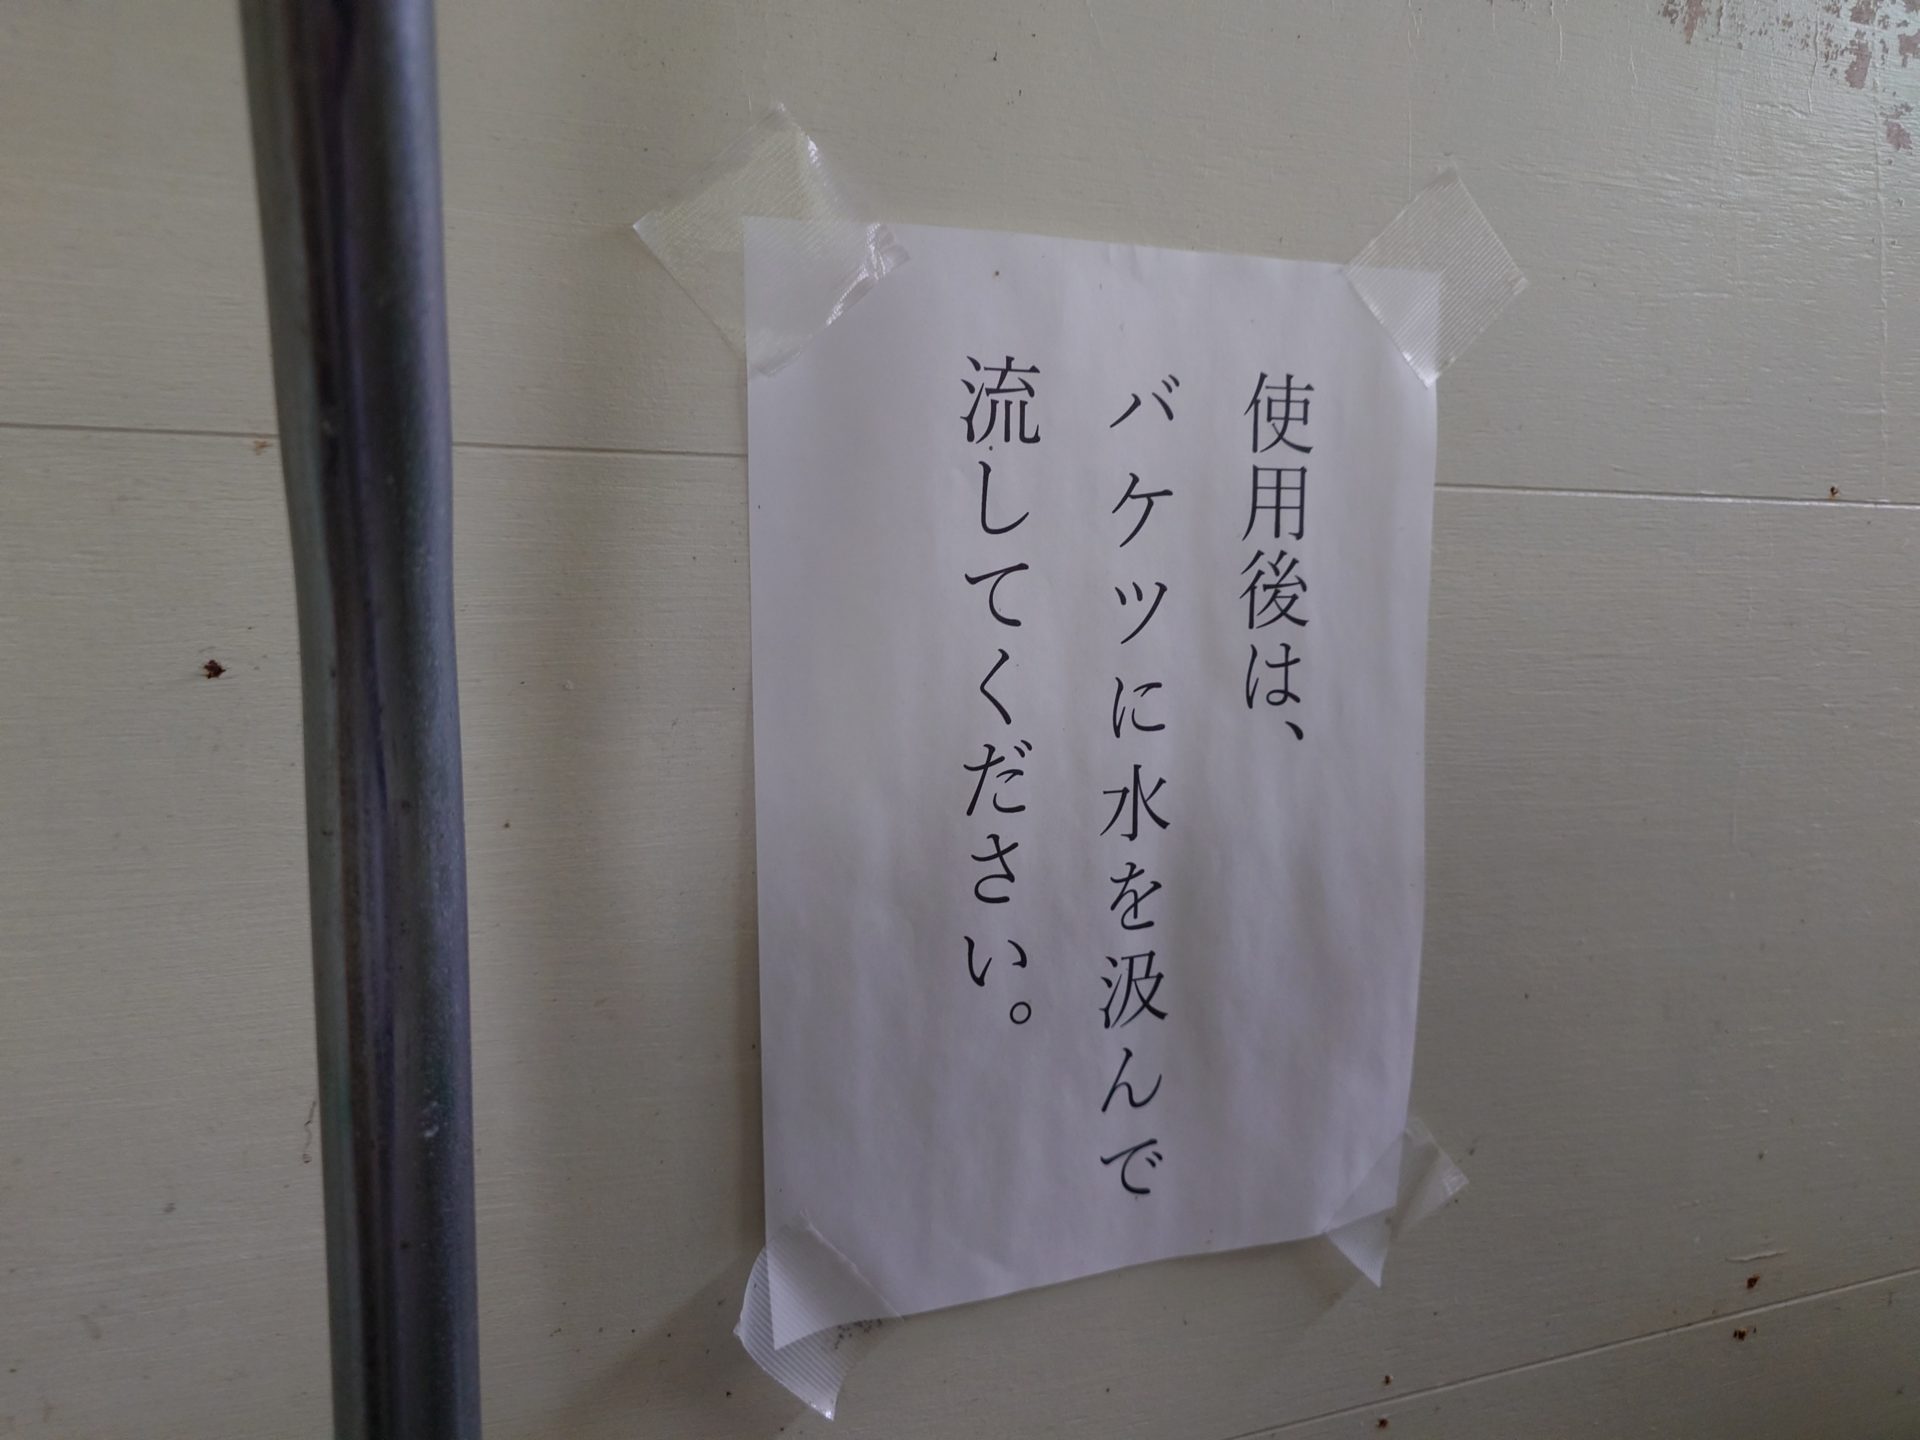 使用後は、
バケツに水を汲んで
流してください。